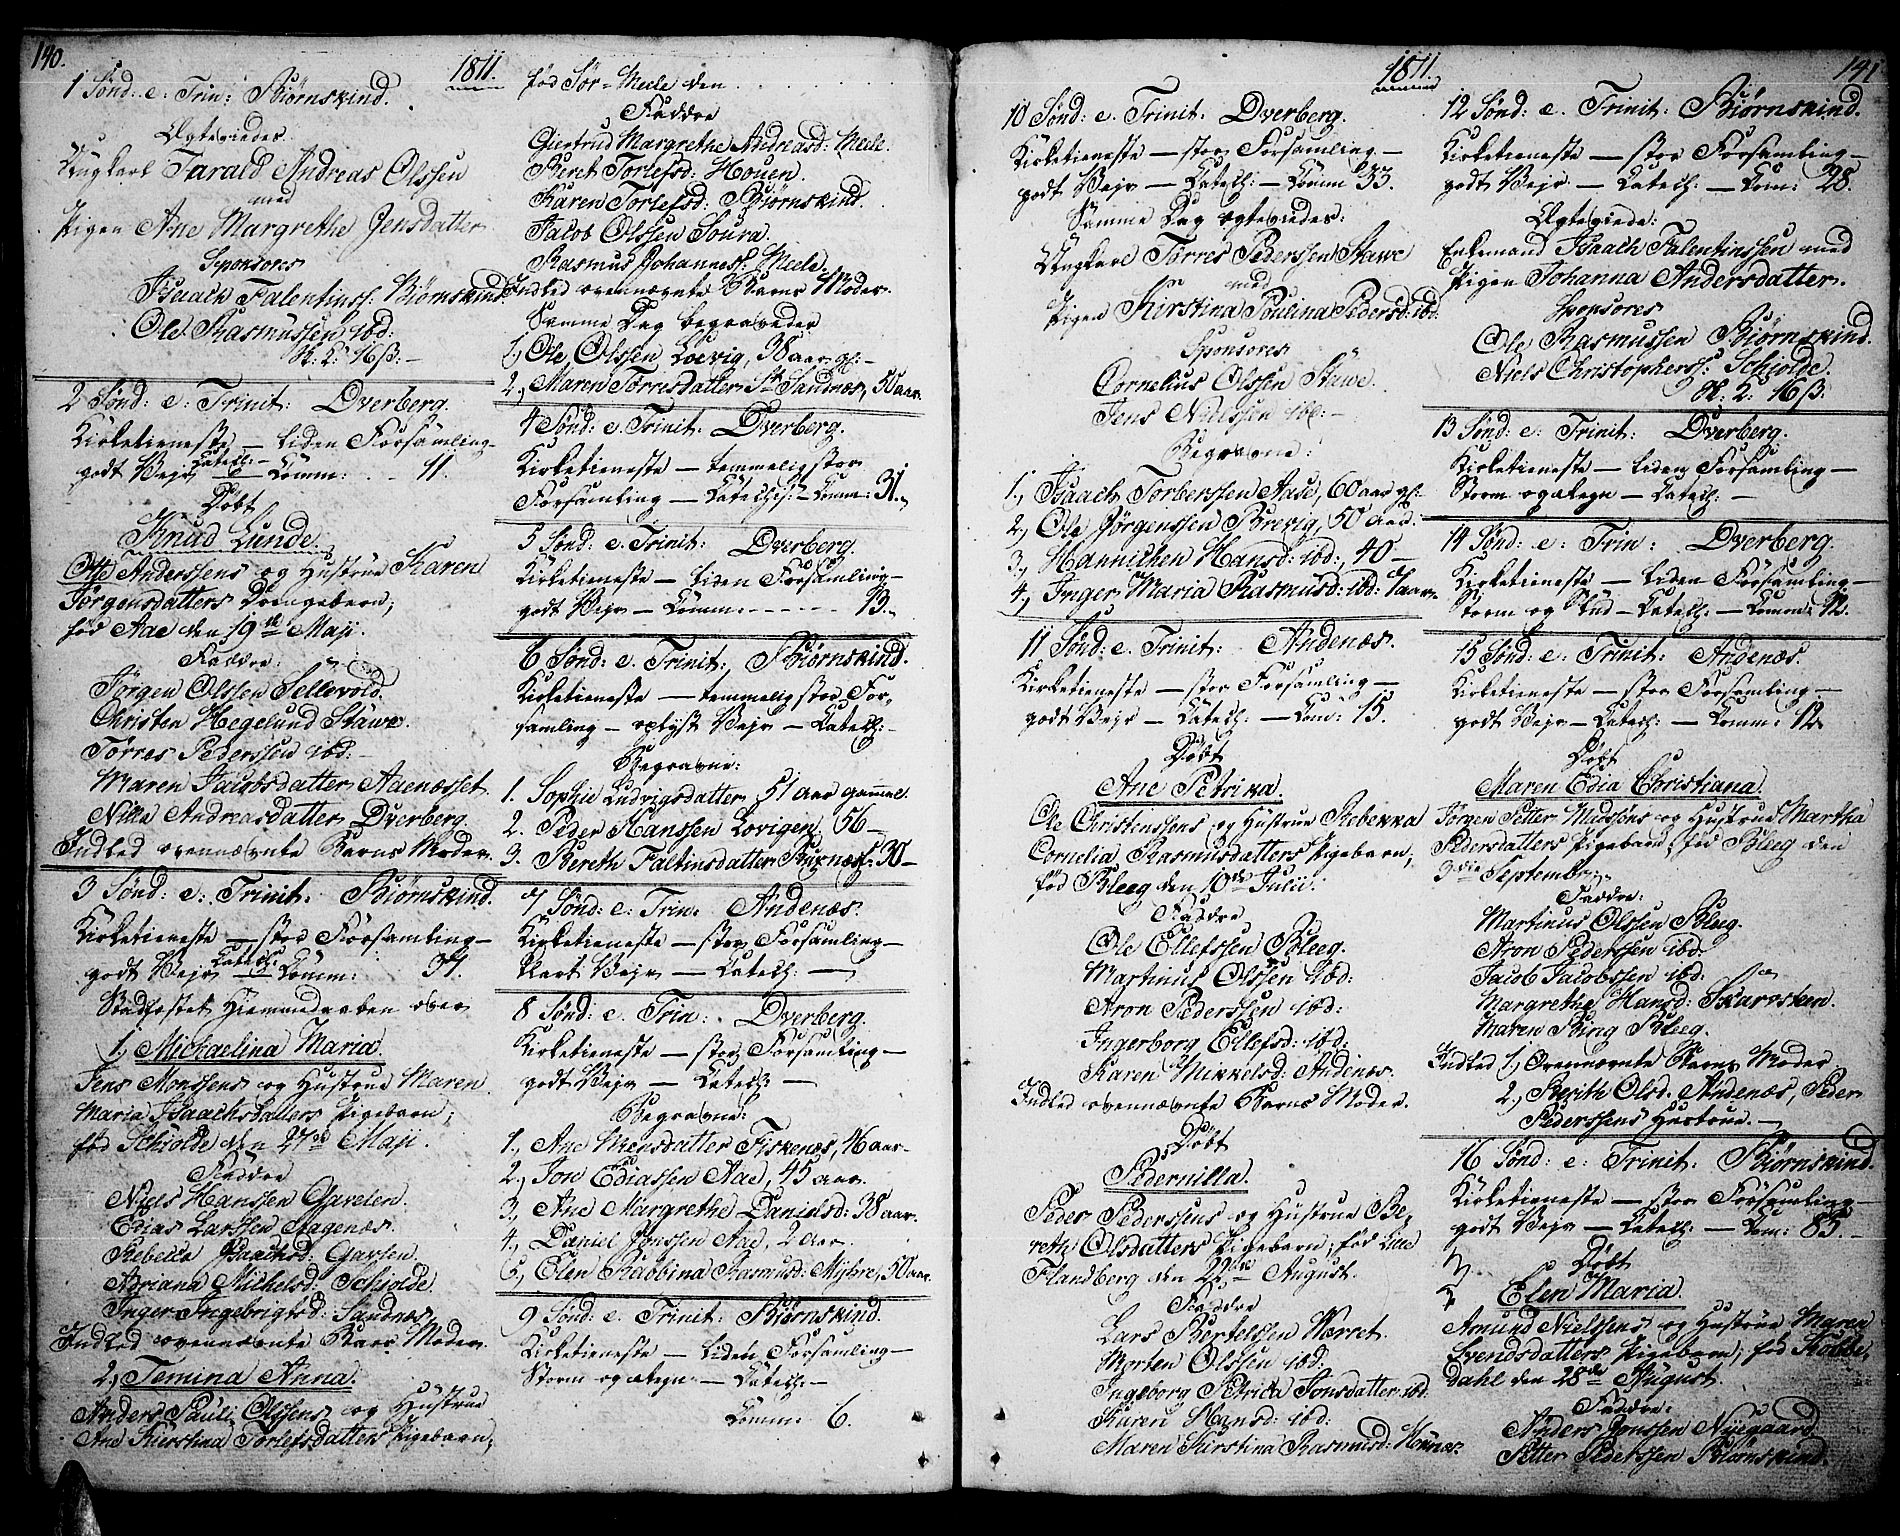 140.
1811.
1 Sønd: e: Trin: Biørnskind.
Ægteviedes
Ungkarl Tarald Andreas Olssen
med
Pigen Ane Margrethe Jensdatter
Sponsores
Isaach Falentinss: Biørnskind
Ole Rasmussen ibd:
16ß:
2 Sønd: e: Trinit: Dverberg.
Kirketieneste — liden Forsamling
godt Vejr — Catech: — Comm: .. 11.
Døbt
Knud Lunde
Ole Anderssens og Hustrue Karen
Jørgensdatters Drengebarn,
fød Aae den 19de Maji.
Faddre:
Jørgen Olssen Sellevold.
Christen Hegelund Stawe.
Tørres Pederssen ibd:
Maren Jacobsdatter Aaenæsset.
Nilla Andreasdatter Dverberg.
Indled ovennævnte Barns Moder.
3 Sønd: e: Trinit: Biørnskind.
Kirketieneste — stor Forsamling —
godt Vejr — Catech: — Comm: 37.
Stadfæstet Hiemmedaaben over
1, Michaelina Maria.
Jens Monssens og Hustrue Maren
Maria Isaachsdatters Pigebarn,
fød Schiolde den 27de Maji.
Faddre
Niels Hanssen Gavelen.
Edias Larssen Aagenæs.
Rebecca Isaachsd: Gavsen.
Adriana Michelsd: Schiolde.
Inger Ingebrigtsd: Sandnæs.
Indled ovennævnte Barns Moder.
2, Temina Anna.
Anders Pauli Olssens og Hustrue
Ane Kirstina Torlefsdatters Pigebarn,
fød Sør-Meele den ....
Faddre
Giertrud Margrethe Andreasd: Meele.
Beret Torlefsd: Houen.
Karen Torlefsd: Biørnskind.
Jacob Olssen Soura.
Rasmus Johanness: Meele.
Indled ovennævnte Barns Moder.
Samme Dag begravedes
1, Ole Olssen Loevig, 38 aar gl: —
2, Maren Torresdatter Sandnæs, 50 aar.
4 Sønd: e. Trinit: Dverberg.
Kirketieneste — temmelig stor
Forsamling — Catech: — Comm: 31.
5 Sønd: e. Trinit: Dverberg.
Kirketieneste — liden Forsamling —
godt Vejr — Comm: ...... 13.
6 Sønd: e. Trinit: Biørnskind.
Kirketieneste — temmelig stor For-
samling — Vejr — Catech: —
Begravne:
1. Sophie Ludvigsdatter 51 aar gammel.
2. Peder Hanssen Lovigen, 56 —
3. Bereth Faltinsdatter Buxnæs: 30 —
7 Sønd: e: Trin: Andenæs.
Kirketieneste — stor Forsamling —
klart Vejr — Catech: —
8 Sønd: e. Trin: Dverberg.
Kirketieneste — stor Forsamling —
godt Vejr — Catech —
Begravne:
1, Ane Monsdatter Fiskenæs, 16 aar.
2, Jon Ediassen Aae, 45 aar.
3, Ane Margrethe Danielsd: 38 aar.
4, Daniel Jonssen Aae, 2 aar.
5, Elen Rabbina Rasmusd: Myhre, 50 aar.
9 Sønd: e. Trinit: Biørnskind.
Kirketieneste — liden Forsamling —
Storm og Regn — Catech: —
Comm: 6.
1811.
141
10 Sønd: e. Trinit: Dverberg.
Kirketieneste — stor Forsamling —
godt Vejr — Catech: — Comm 33.
Samme Dag ægteviedes:
Ungkarl Tørres Pederssen Stawe
med
Pigen Kirstina Poulina Pedersd: ibd:
Sponsores
Cornelius Olssen Stawe.
Jens Nielssen ibd: —
Begravne:
1, Isaach Torberssen Aase, 60 aar gl:
2, Ole Jørgenssen Brevig, 50 aar.
3, Hannichen Hansd: ibd:, 40 —
4, Inger Maria Rasmusd: ibd: 1 aar.
11 Sønd: e. Trinit: Andenæs.
Kirketieneste — stor Forsamling —
godt Vejr — Catech: — Com: 15.
Døbt
Ane Petrika.
Ole Christenssens og Hustrue Rebekka
Cornelia Rasmusdatters Pigebarn,
fød Bleeg den 10de Julii.
Faddre
Ole Ellefssen Bleeg.
Martinus Olssen ibd:
Aron Pederssen ibd:
Ingerborg Ellefsd: ibd:
Karen Mikkelsd: Andenæs.
Indled ovennævnte Barns Moder.
Døbt
Pedernilla.
Peder Pederssens og Hustrue Be-
reth Olsdatters Pigebarn, fød Lille
Flandberg den 22de August.
Faddre
Lars Bertelssen Norret.
Morten Olssen ibd:
Ingeborg Petrica Jonsdatter ibd:
Karen Hansd: ibd:
Maren Kirstina Rasmusd:
12 Sønd: e. Trinit: Biørnskind.
Kirketieneste — stor Forsamling —
godt Vejr — Catech: — Com: 28.
Ægteviede:
Enkemand Isaach Falentinssen med
Pigen Johanna Andersdatter.
Sponsores
Ole Rasmussen Biørnskind.
Niels Christopherss: Schiolde.
16ß.
13 Sønd: e: Trinit: Dverberg.
Kirketieneste — liden Forsamling —
Storm og Regn — Catech: —
14 Sønd: e: Trin: Dverberg.
Kirketieneste — liden Forsamling —
Storm og Slud — Catech: — Comm: 12.
15 Sønd: e: Trinit: Andenæs.
Kirketieneste — stor Forsamling —
godt Vejr — Catech: — Comm: 12
Døbt
Maren Edia Christiana.
Jørgen Petter Nielssens og Hustrue Martha
Pedersdatters Pigebarn, fød Bleeg den
3die Septembris.
Faddre:
Martinus Olssen Bleeg.
Aron Pederssen ibd:
Jacob Jacobssen ibd:
Margrethe Hansd: Skarvsteen.
Maren Bing Bleeg.
Indled 1, Ovennævnte Barns Moder
2, Berith Olsd. Andenæs, Peder
Pederssens Hustrue. —
16 Sønd: e: Trinit: Biørnskind.
Kirketieneste — stor Forsamling —
godt Vejr — Catech: — Com: 85. —
Døbt
Elen Maria.
Amund Nielssens og Hustrue Maren
Svendsdatters Pigebarn, fød Kobbe-
dahl den 28de August.
Faddre:
Anders Jonssen Nyegaard
Petter Pederssen Biørnskind.